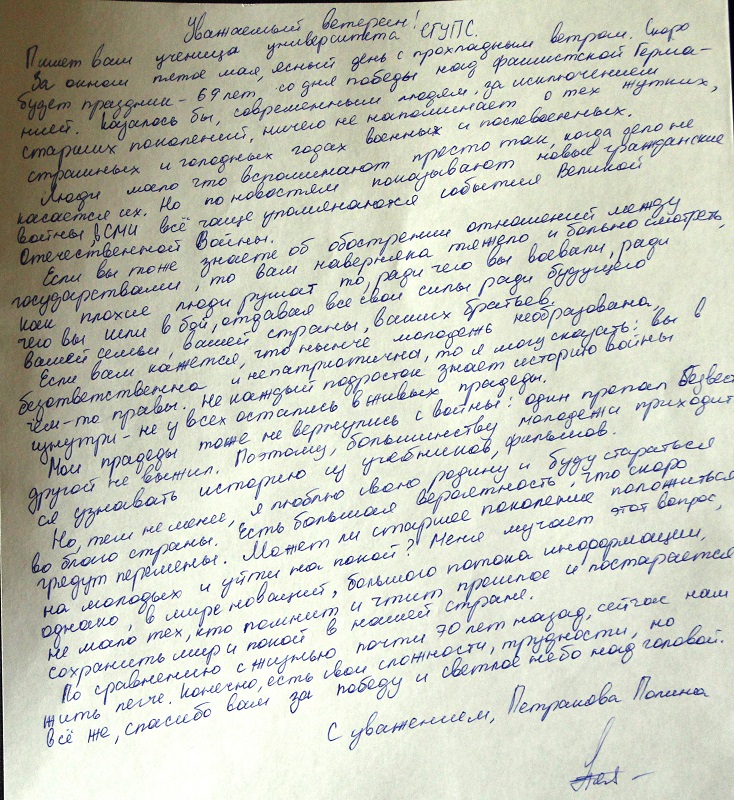 Уважаемый ветеран!
Пишет вам ученица университета СГУПС.
За окном пятое мая, ясный день с прохладным ветром. Скоро
будет праздник - 69 лет со дня победы над фашистской Герма-
нией. Казалось бы, современным людям, за исключением
старших поколений, ничего не напоминает о тех жутких,
страшных и голодных годах военных и послевоенных.
Люди мало что вспоминают просто так, когда дело не
касается их. Но по новостям показывают новые гражданские
войны, в СМИ всё чаще упоминаются события Великой
Отечественной Войны.
Если вы тоже знаете об обострении отношений между
государствами, то вам наверняка тяжело и больно смотреть,
как плохие люди рушат то, ради чего вы воевали, ради
чего вы шли в бой, отдавая все свои силы ради будущего
вашей семьи, вашей страны, ваших братьев.
Если вам кажется, что нынче молодежь необразована,
безответственна и непатриотична, то я могу сказать: вы в
чем-то правы. Не каждый подросток знает историю войны
изнутри - не у всех остались в живых прадеды.
Мои прадеды тоже не вернулись с войны: один пропал безвест
другой не выжил. Поэтому, большинству молодежи приходит
ся узнавать историю из учебников, фильмов.
Но, тем не менее, я люблю свою родину и буду стараться
во благо страны. Есть большая вероятность, что скоро
грядут перемены. Может ли старшее поколение положиться
на молодых и уйти на покой? Меня мучает этот вопрос,
однако, в мире новаций, большого потока информации,
не мало тех, кто помнит и чтит прошлое и постарается
сохранить мир и покой в нашей стране.
По сравнению с жизнью почти 70 лет назад, сейчас нам
жить легче. Конечно, есть свои сложности, трудности, но
всё же, спасибо вам за победу и светлое небо над головой.
С уважением, Петракова Полина